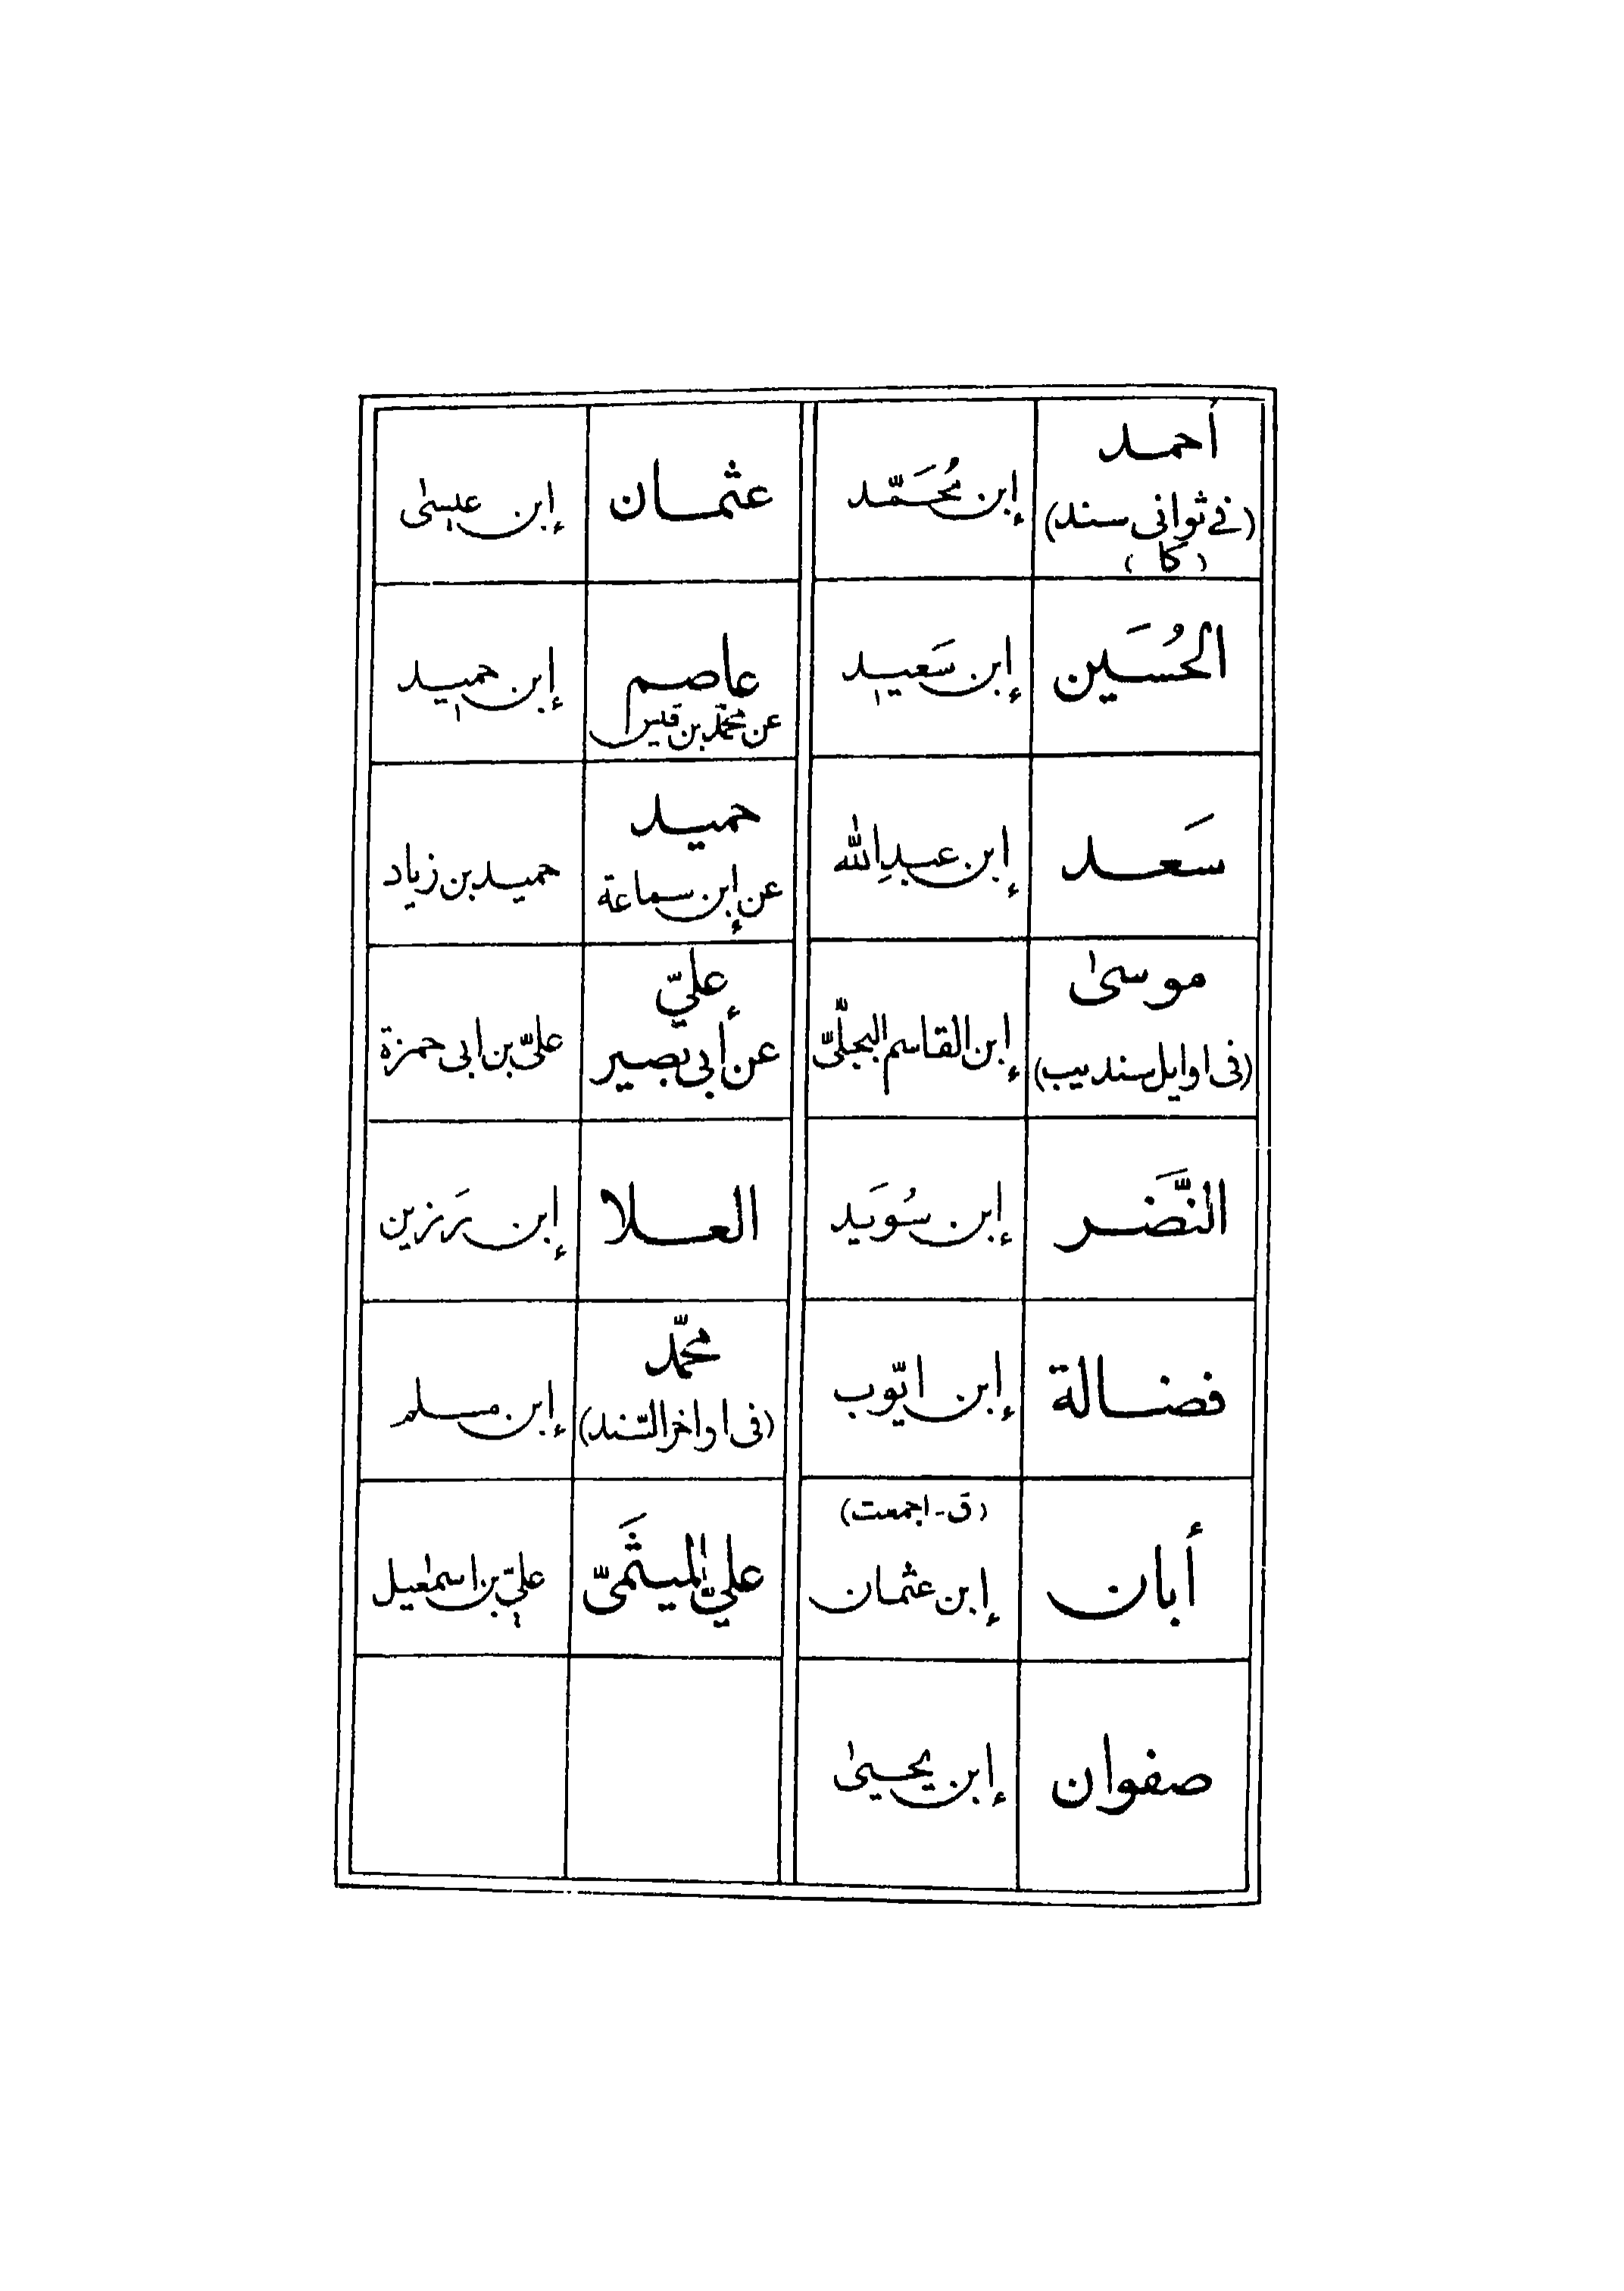 أحمد
(في ثواني سند)
(كا)
إبن مُحَمَّد
عثمان
إبن عيسىٰ
الحُسَين
إبن سَعيد
عاصم
عن محمّد بن قيس
إبن حميد
سَعد
إبن عبدِالله
حميد
عن إبن سماعة
حميد بن زياد
موسىٰ
(في اوايل سند يب)
إبن القاسم البجلّيّ
عليّ
عن أبي بصير
عليّ بن ابي حمزة
النَّضَر
إبن سُوَيد
العلا
إبن رَزين
فضالة
إبن ايّوب
محمّد
(في اواخر السّند)
إبن مسلم
أبان
(ق - اجمعت)
إبن عثمان
عليّ الميثَميّ
عليّ بن اسمٰعيل
صفوان
إبن يحيىٰ